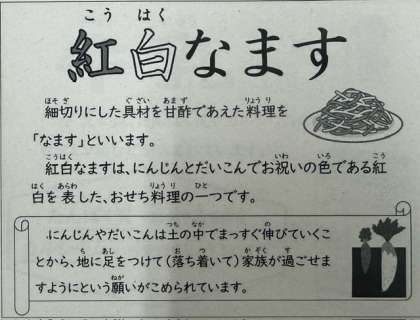 こうはく
紅白なます
ほそぎ ぐざい あまず りょうり
細切りにした具材を甘酢であえた料理を
「なます」といいます。
こうはく いわ いろ こう
紅白なますは、にんじんとだいこんでお祝いの色である紅
はく あらわ りょうり ひと
白を表した、おせち料理の一つです。
つち なか の
にんじんやだいこんは土の中でまっすぐ伸びていくこ
ち あし お つ かぞく す
とから、地に足をつけて(落ち着いて)家族が過ごせま
ねが
すようにという願いがこめられています。